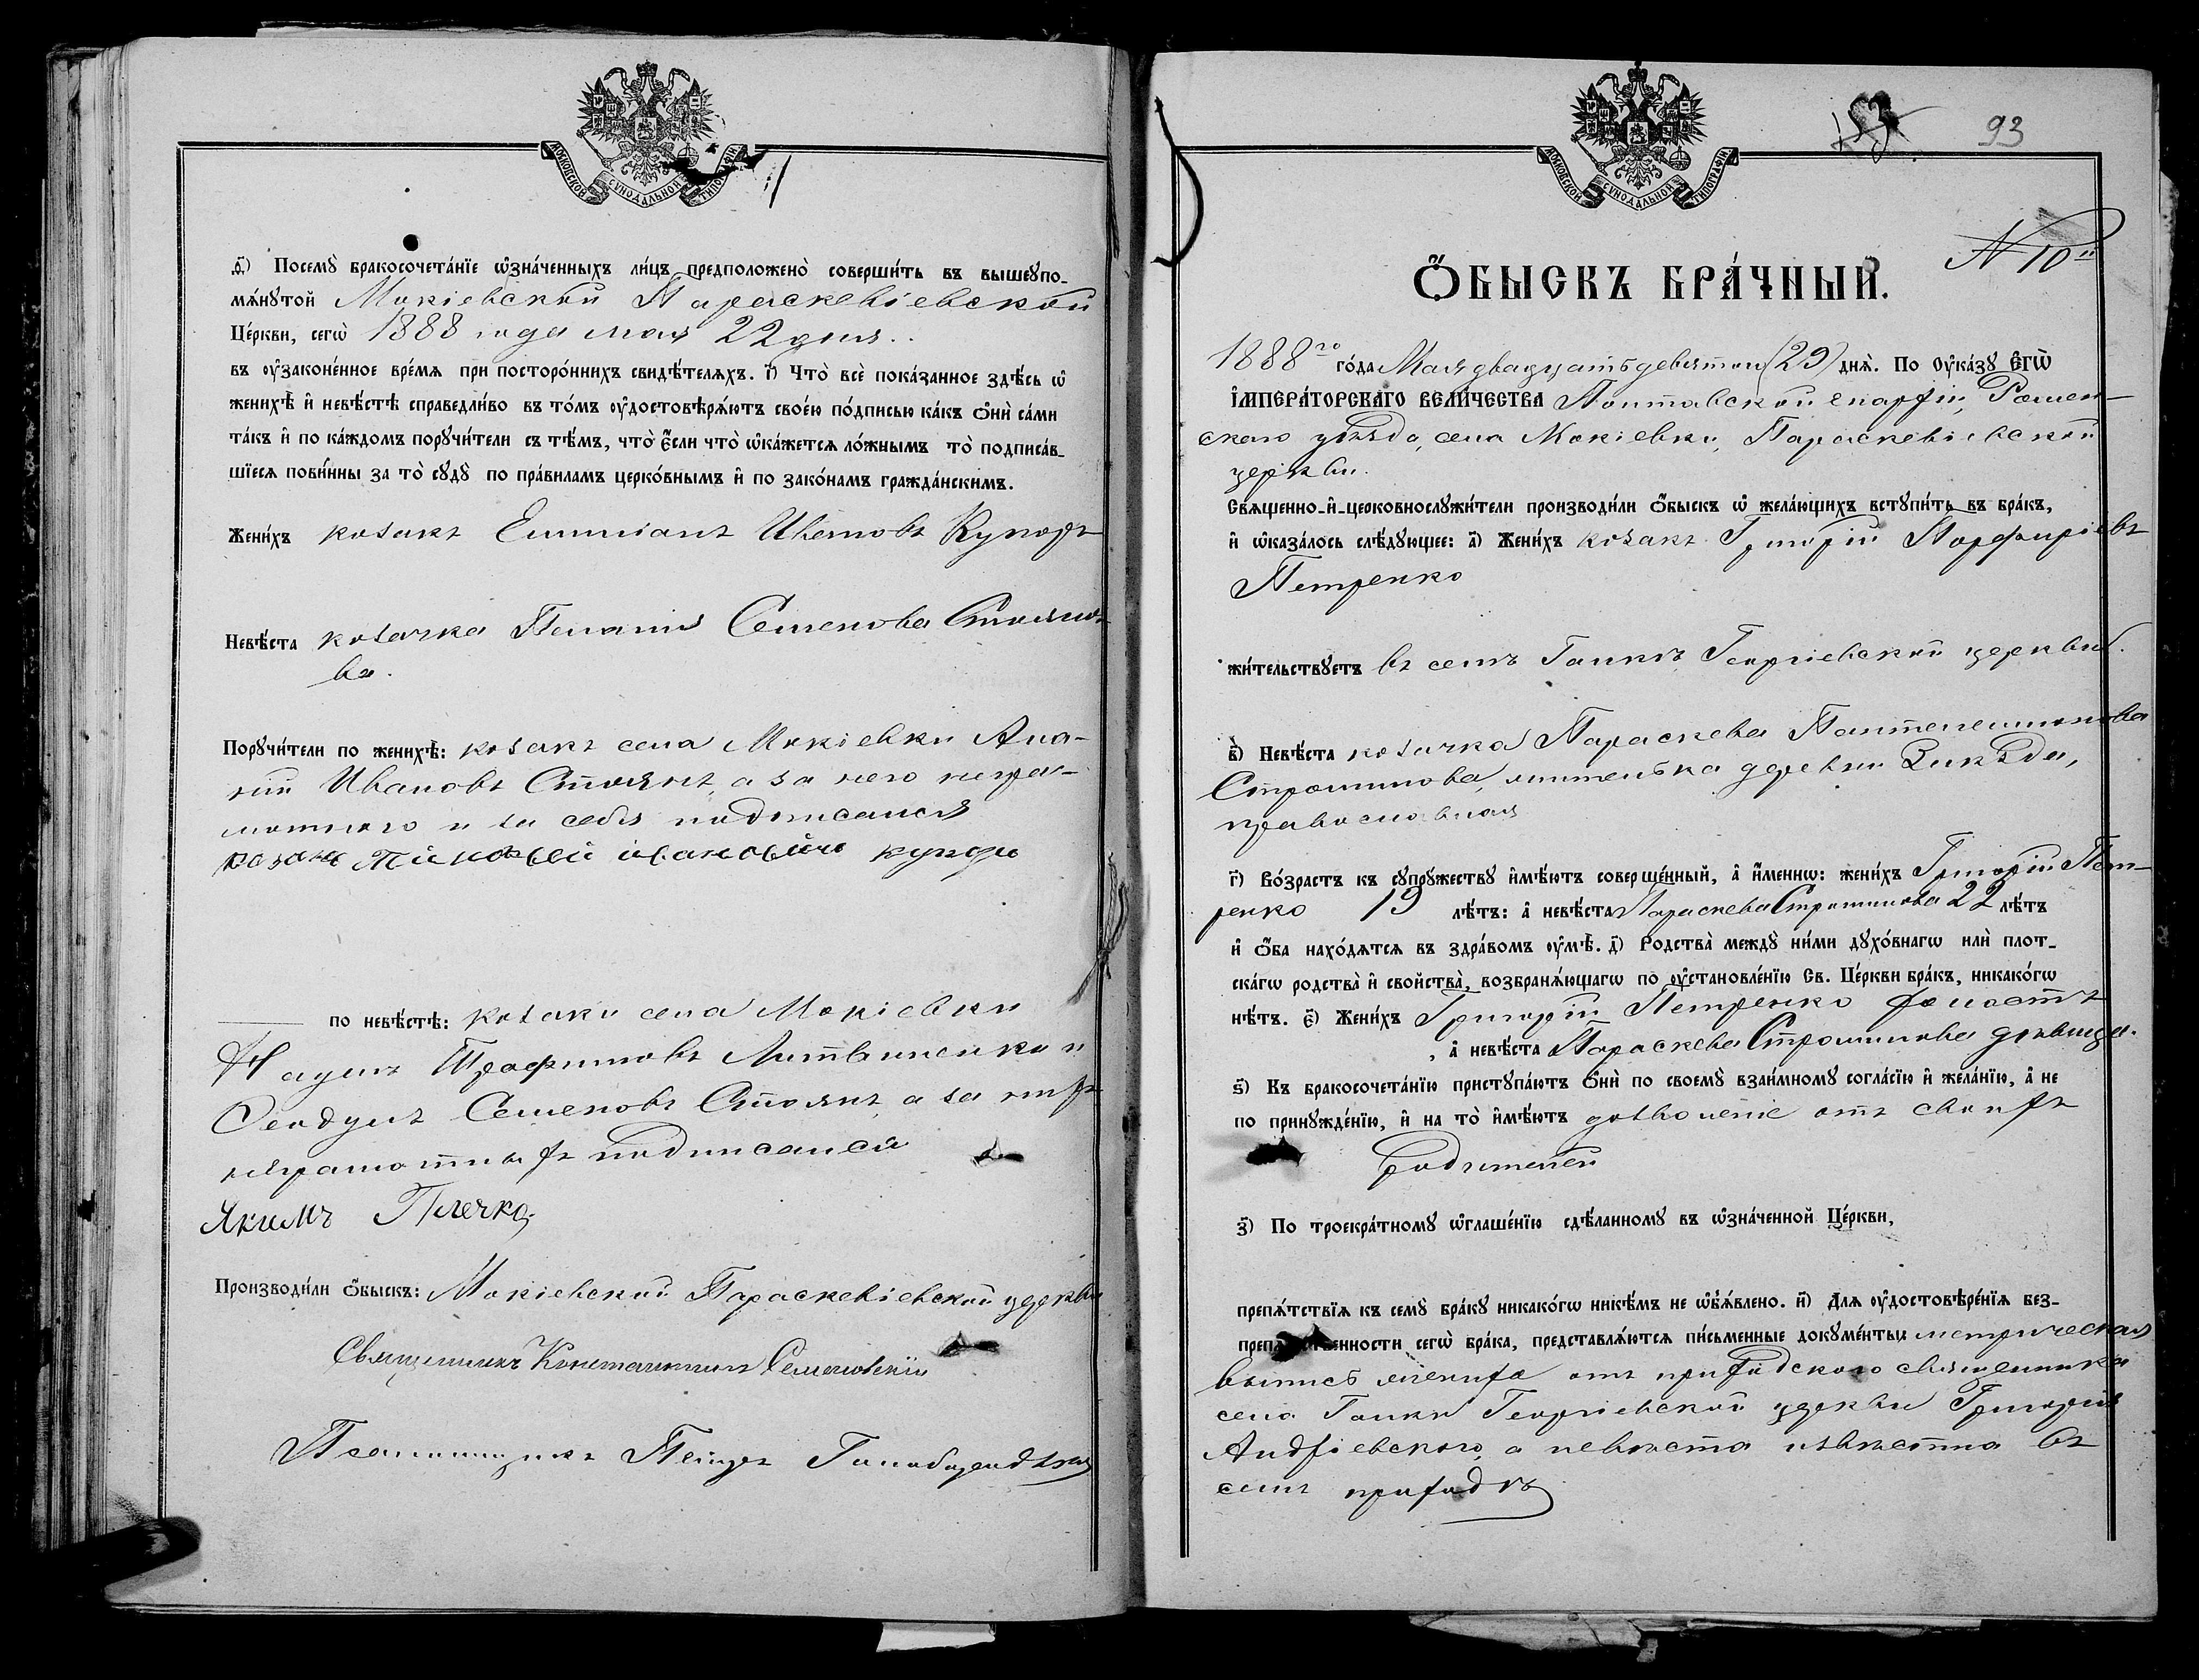 МОСКОВСКОЙ СѴНОДАЛЬНОЙ ТИПОГРАФІИ
ѳ҃) Посемꙋ̀ бракосочета́нїе ѡ҆зна́ченныхъ ли́цъ предположено̀ соверши́ть въ вышеꙋпо-
мѧ́нꙋтой Мокіевской Параскевіевской
Це́ркви, сегѡ̀ 1888 года мая 22 дня.
въ ᲂу҆зако́не́нное вре́мѧ при посторо́ннихъ свидѣ́телѧхъ. і҃) Что̀ всѐ пока́занное здѣ́сь ѡ҆
женихѣ̀ и҆ невѣ́стѣ справедли́во въ то́мъ ᲂу҆достовѣрѧ́ютъ свое́ю по́дписью ка́къ ѻ҆нѝ са́ми
та́къ и҆ по ка́ждомъ порꙋчи́тели съ тѣ́мъ, что̀ є҆́сли что̀ ѡ҆ка́жетсѧ ло́жнымъ то̀ подписа́в-
шїесѧ пови́нны за то̀ сꙋдꙋ̀ по пра́виламъ церко́внымъ и҆ по зако́намъ гражда́нскимъ.
Жени́хъ козакъ Емиліанъ Ивановъ Купоръ
Невѣ́ста козачка Пелагія Семенова Стояно-
ва.
Порꙋчи́тели по женихѣ̀: козакъ села Мокіевки Ана-
ній Ивановъ Стоянъ, а за него неграм-
мотного и за себя подписался
козакъ Тимофей ивановичъ купоръ
по невѣ́стѣ: козаки села Мокіевки
Наумъ Трофимовъ Литвиненко и
Феодулъ Семеновъ Стоянъ, а за нихъ
неграмотныхъ подписался
Якимъ Плечко
Производи́ли ѻ҆́быскъ: Мокіевской Параскевіевской церкви
Священникъ Константинъ Семеновскій
Псаломщикъ Петръ
93
МОСКОВСКОЙ СѴНОДАЛЬНОЙ ТИПОГРАФІИ
N 10й
Ѻ҆́БЫСКЪ БРА́ЧНЫЙ.
1888го го́да Мая двадцать девятого (29) днѧ̀. По ᲂу҆ка́зꙋ Є҆ГѠ̀
І҆МПЕРА́ТОРСКАГО ВЕЛИ́ЧЕСТВА Полтавской епархіи, Ромен-
скаго уѣзда, села Мокіевки, Параскевіевской
церкви.
Свѧщенно-и҆-церковнослꙋжи́тели производи́ли ѻ҆́быскъ ѡ҆ жела́ющихъ встꙋпи́ть въ бра́къ,
и҆ ѡ҆каза́лось слѣ́дꙋющее: а҃) Жени́хъ козакъ Григорій Порфиріевъ
Петренко
жи́тельствꙋетъ въ селѣ Галкѣ Георгіевской церкви.
в҃) Невѣ́ста козачка Параскева Пантелеимонова
Стромилова, жителька деревни
православная
г҃) Во́зрастъ къ сꙋпрꙋ́жествꙋ и҆мѣ́ютъ соверше́нный, а҆ и҆́меннѡ: жени́хъ Григорій Пет-
ренко 19 лѣ́тъ: а҆ невѣ́ста Параскева Стромилова 22 лѣ́тъ
и҆ ѻ҆́ба нахо́дѧтсѧ въ здра́вомъ ᲂу҆мѣ̀. д҃) Родства̀ междꙋ̀ ни́ми дꙋхо́внагѡ илѝ плот-
ска́гѡ родства̀ и҆ свойства̀, возбранѧ́ющагѡ по ᲂу҆становле́нїю Св. Це́ркви бра́къ, никако́гѡ
нѣ́тъ. є҃) Жени́хъ Григорій Петренко холостъ
, а҆ невѣ́ста Параскева Стромилова дѣвица.
ѕ҃) Къ бракосочета́нїю пристꙋпа́ютъ ѻ҆нѝ по своемꙋ̀ взаи́мномꙋ согла́сїю и҆ жела́нїю, а҆ не
по принꙋжде́нїю, и҆ на то̀ и҆мѣ́ютъ дозволеніе отъ своихъ
родителей
з҃) По троекра́тномꙋ ѡ҆глаше́нїю сдѣ́ланномꙋ въ ѡ҆зна́ченной Це́ркви,
препѧ́тствїѧ къ семꙋ̀ бра́кꙋ никако́гѡ никѣ́мъ не ѡ҆б̾ѧ́влено. и҃) Длѧ ᲂу҆достовѣре́нїѧ без-
препѧ́тственности сегѡ̀ бра́ка, представлѧ́ютсѧ пи́сьменные докꙋме́нты метрическая
выпись жениха отъ приходского священника
села Галки Георгіевской церкви Григорія
Андріевского, а невѣста извѣстна въ
семъ приходѣ